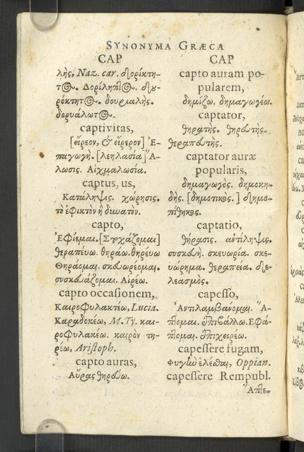 SYNONYMA GRÆCA
CAP
λής, Naz. car. δορίκτη-
τ⊕. Δορίληπ⊕. δου-
ρίκτητ⊕. δουριαλής.
δορυάλωτ⊕.
captivitas,
[εἴρεον, & εἴρερον] Ἐ-
παγωγή. [λεηλασία] Ἅ-
λωσις. Αἰχμαλωσία.
captus, us,
Κατάληψις. χώρησις.
τὸ ἐφικτὸν ἢ δυνατόν.
capto,
Ἐφίεμαι. [Στοχάζομαι]
θεραπεύω. θηράω. θηρεύω
Θηράομαι. σκευωρέομαι.
συσκευάζομαι. Αἱρέω.
capto occasionem,
Καιροφυλακτέω, Lucia.
Καραδοκέω, M. Ty. και-
ροφυλακέω. καιρὸν τη-
ρέω, Aristoph.
capto auras,
Αὔρας θηρεύω.
CAP
capto auram po-
pularem,
δημίζω. δημαγωγέω.
captator,
θηρατής. θηρευτής.
θεραπευτής.
captator auræ
popularis,
δημαγωγός. δημοκη-
δής. [δημοτικός.]
captatio,
θήρασις. ἀντίληψις.
συσκευή. σκευωρία. σκευ-
ώρημα. θεραπεία. δε-
λεασμός.
capesso,
Ἀντιλαμβάνομαι. Ἅ-
πτομαι. Ἐπιβάλλω. Ἐφά-
πτομαι. Ἐπιχειρέω.
capessere fugam,
φυγῇ ἑλέσθαι, Oppian.
capessere Rempubl.